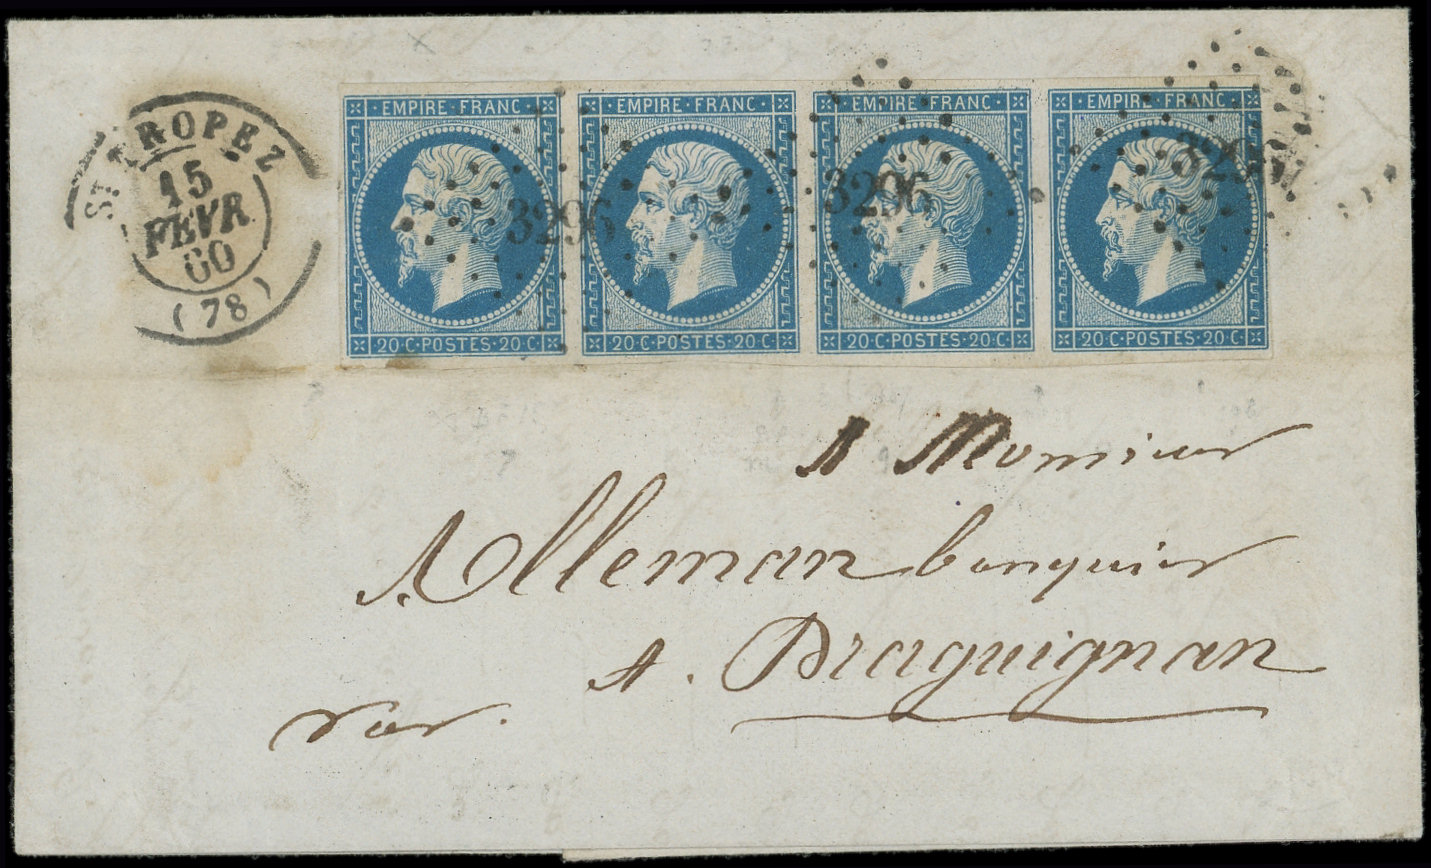 ST TROPEZ
15
FEVR
60
(78)
EMPIRE · FRANC · EMPIRE · FRANC · EMPIRE · FRANC · EMPIRE · FRANC ·
3296 3296 3296
20 · C · POSTES · 20 · C · 20 · C · POSTES · 20 · C · 20 · C · POSTES · 20 · C · 20 · C · POSTES · 20 · C ·
A Monsieur
Alleman banquier
A. Draguignan
Var.